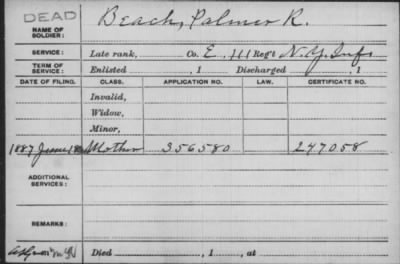 DEAD
NAME OF SOLDIER: Beach, Palmer R.
SERVICE: Late rank, Co. E, 111 Reg't N.Y. Inf.
TERM OF SERVICE: Enlisted , 1 Discharged , 1
DATE OF FILING. CLASS. APPLICATION NO. LAW. CERTIFICATE NO.
Invalid,
Widow,
Minor,
1887 June Mother 356580 247058
ADDITIONAL SERVICES:
REMARKS:
Died , 1 , at